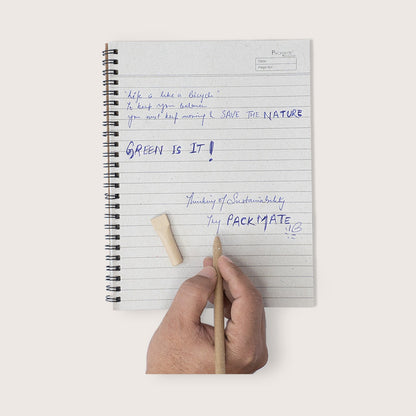 Date:
Page No.:
"Life is like a Bicycle"
To keep your balance
you must keep moving & SAVE THE NATURE
GREEN IS IT!
Thinking of Sustainability
Try PACKMATE